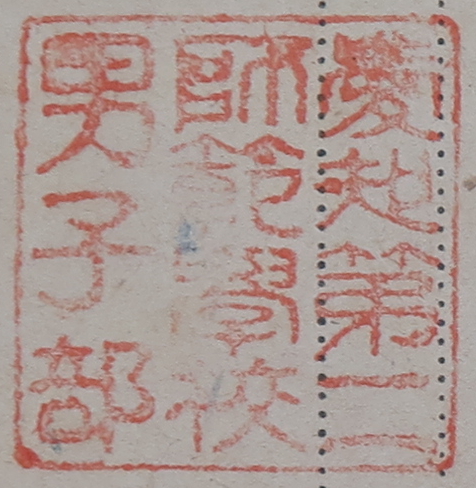 愛知第二
師範學校
男子部